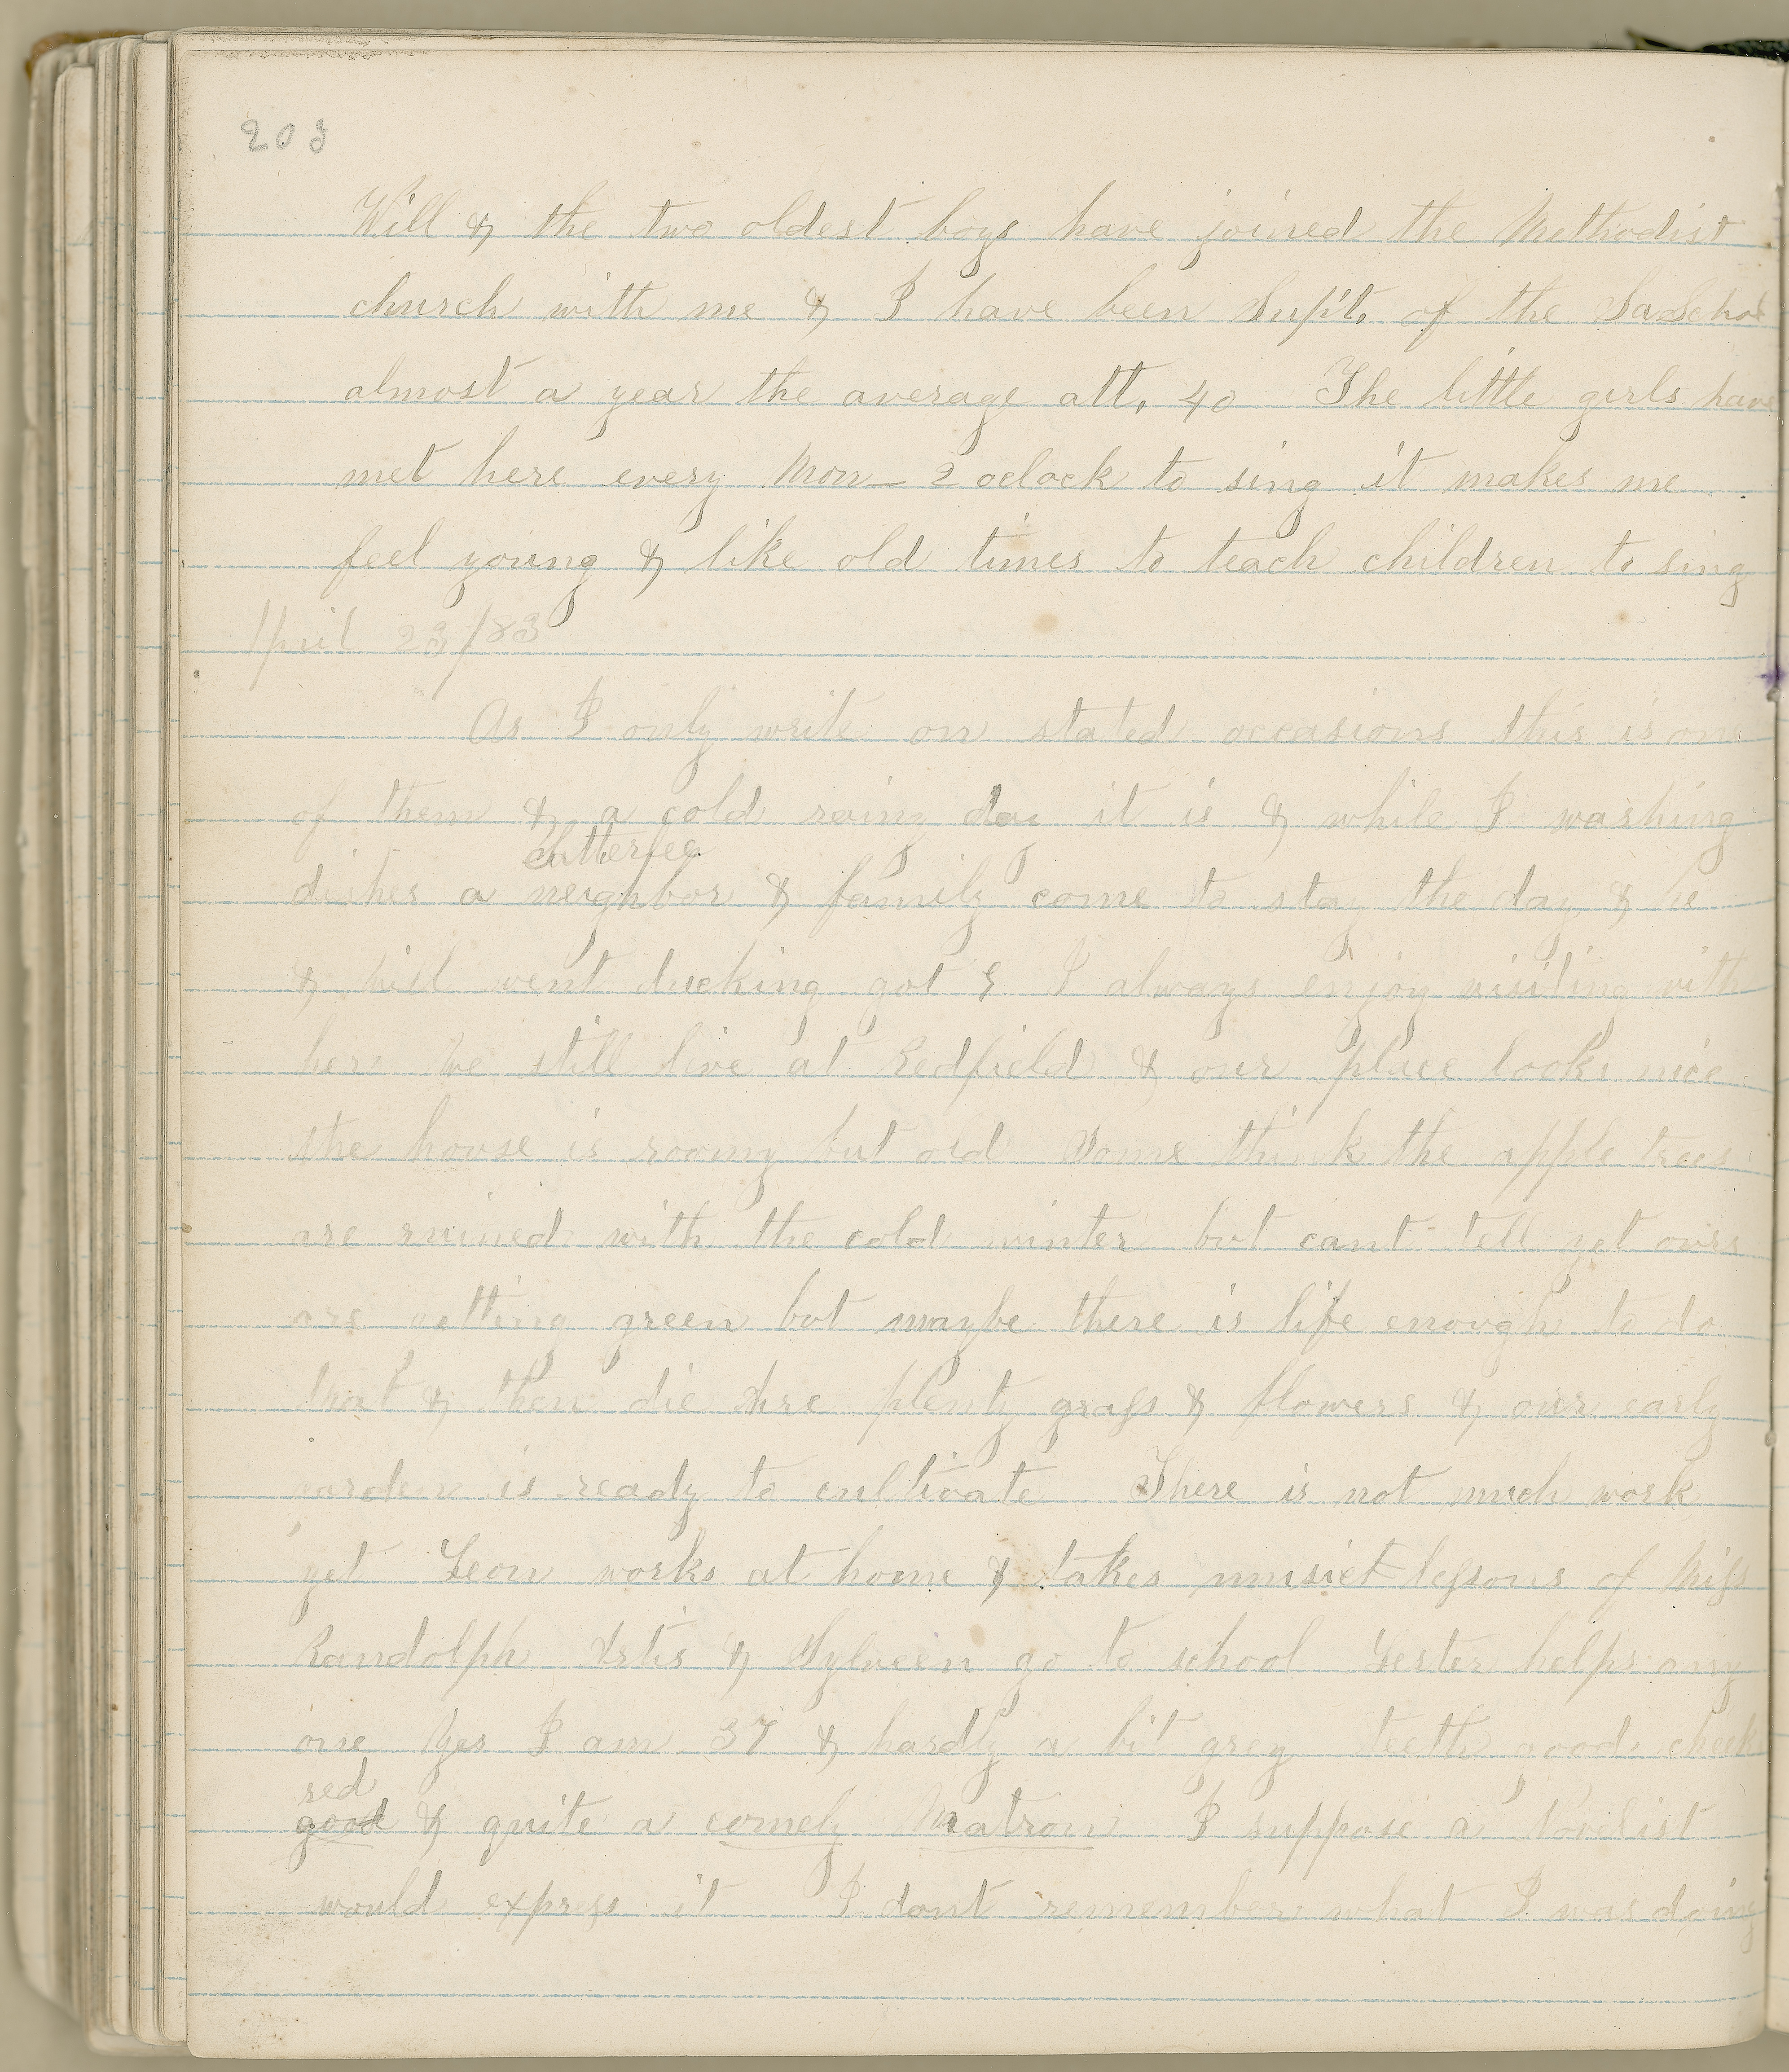 203
Will & the two oldest boys have joined the Methodist
church with me & I have been Supt. of the Sa School
almost a year the average att. 40 The little girls have
met here every Mon — 2 oclock to sing it makes me
feel young & like old times to teach children to sing
April 23/83
As I only write on stated occasions this is one
of them & a cold rainy day it is & while I washing
chatterfee
dishes a neighbor & family come to stay the day & he
& Will went ducking got 8 I always enjoy visiting with
her We still live at Redfield & our place looks nice
the house is roomy but old Some think the apple trees
are ruined with the cold winter but cant tell yet ours
are getting green but maybe there is life enough to do
that & then die there plenty grass & flowers & our early
garden is ready to cultivate There is not much work
yet Leon works at home & takes music lessons of Miss
Randolph & Sylveen go to school Lester helps any
one Yes I am 37 & hardly a bit grey teeth good cheek
red
good & quite a comely Matron I suppose a Novelist
would express it I dont remember what I was doing